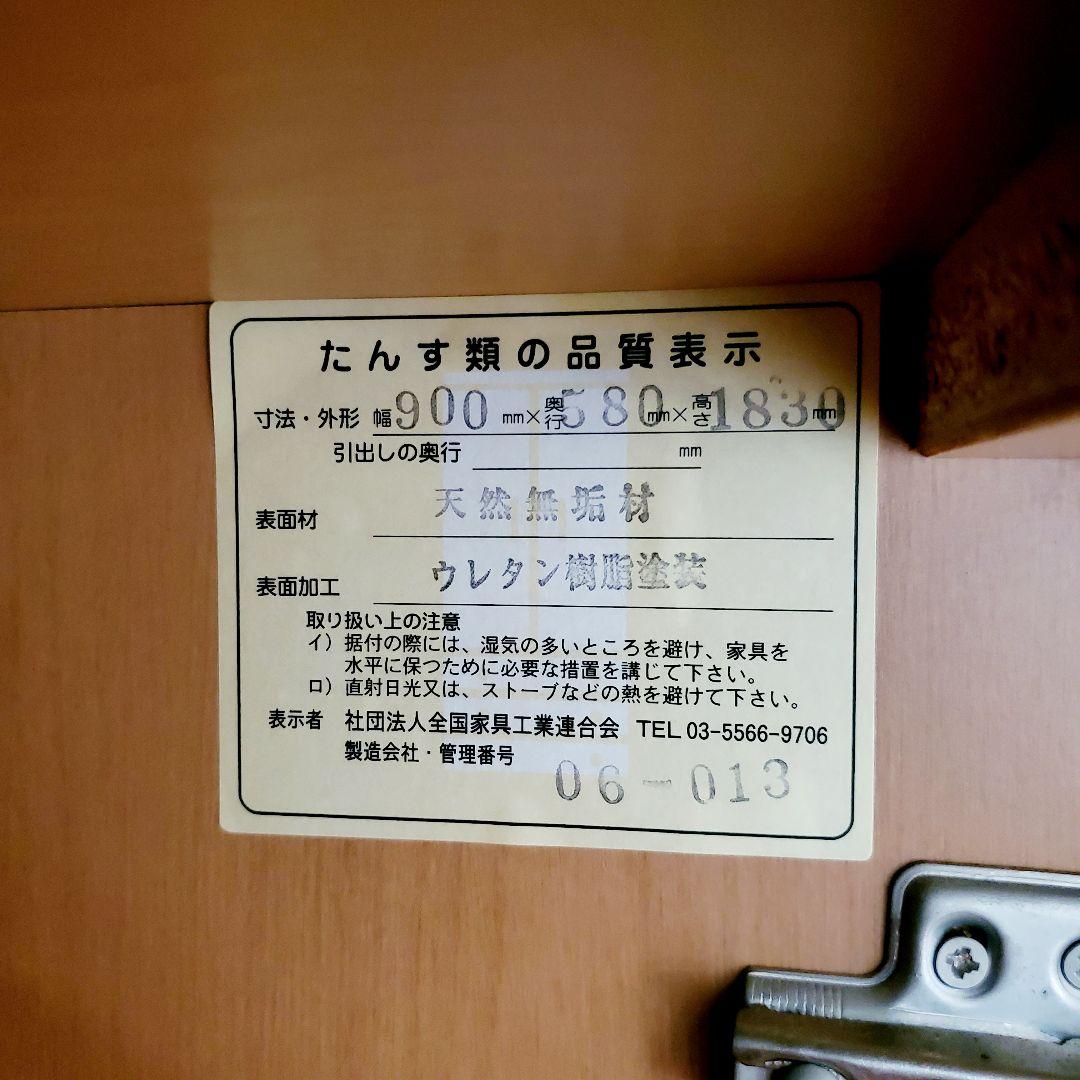 たんす類の品質表示
寸法・外形 幅900mm×奥行580mm×高さ1830mm
引出しの奥行 mm
表面材 天然無垢材
表面加工 ウレタン樹脂塗装
取り扱い上の注意
イ）据付の際には、湿気の多いところを避け、家具を
水平に保つために必要な措置を講じて下さい。
ロ）直射日光又は、ストーブなどの熱を避けて下さい。
表示者 社団法人全国家具工業連合会 TEL 03-5566-9706
製造会社・管理番号
06-013